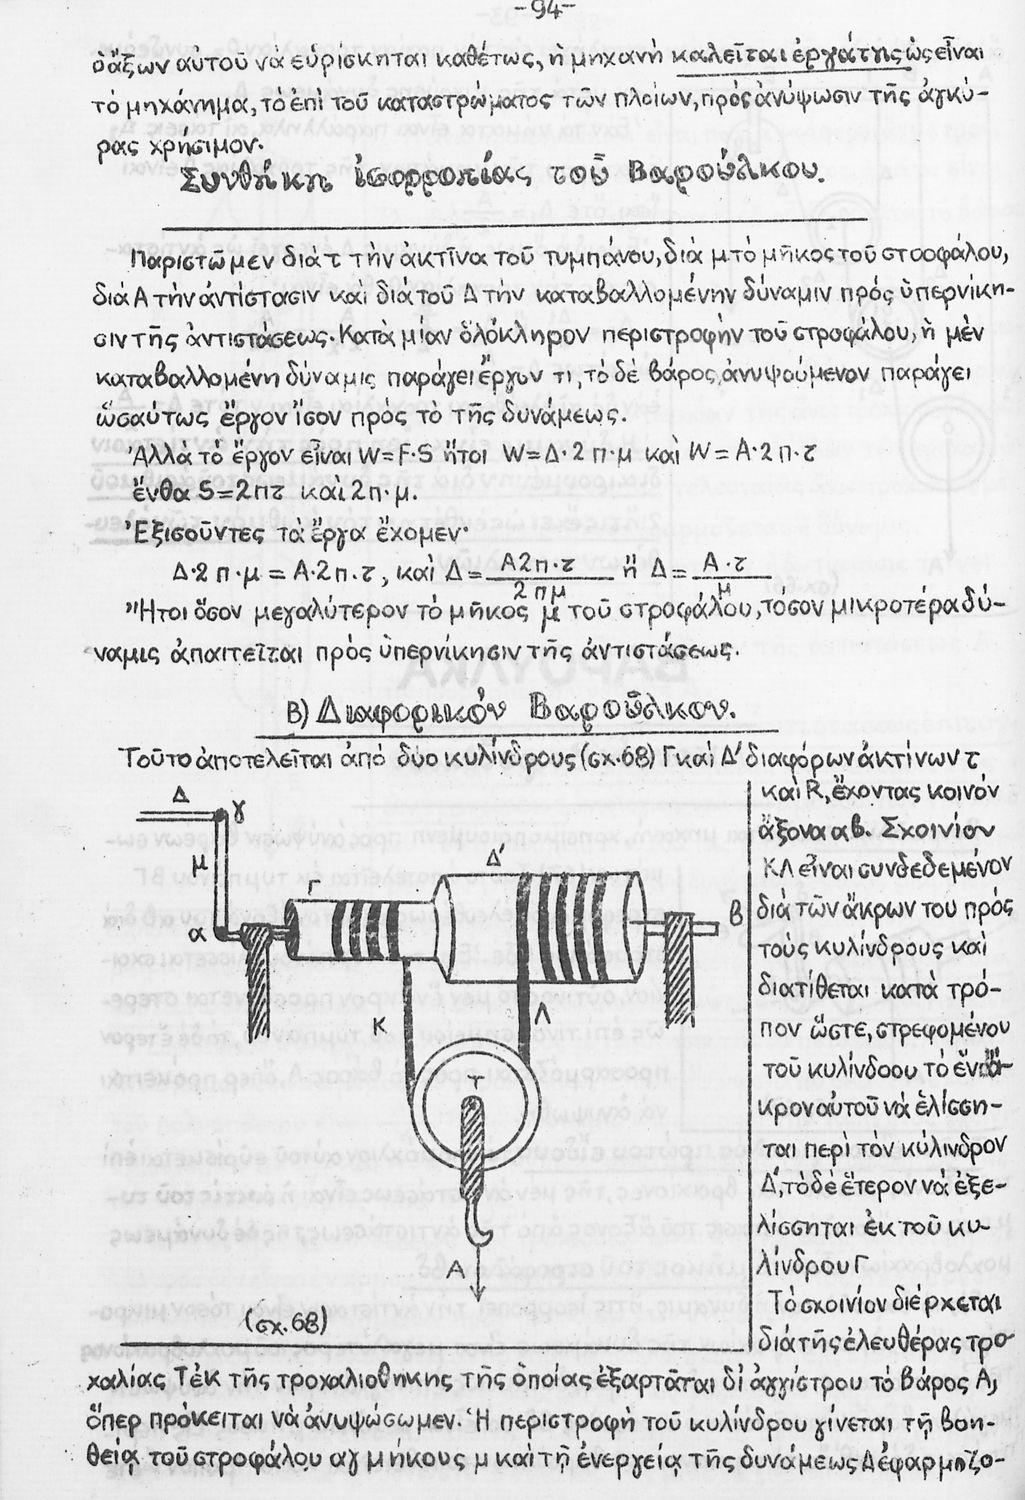 -94-
ὁ ἄξων αὐτοῦ νὰ εὑρίσκηται καθέτως, ἡ μηχανὴ καλεῖται ἐργάτης ὡς εἶναι
τὸ μηχάνημα, τὸ ἐπὶ τοῦ καταστρώματος τῶν πλοίων, πρὸς ἀνύψωσιν τῆς ἀγκύ-
ρας χρήσιμον.
Συνθήκη ἰσορροπίας τοῦ Βαρούλκου.
Παριστῶμεν διὰ τ τὴν ακτῖνα τοῦ τυμπάνου, διὰ μ τὸ μῆκος τοῦ στροφάλου,
διὰ Α τὴν ἀντίστασιν καὶ διὰ τοῦ Δ τὴν καταβαλλομένην δύναμιν πρὸς ὑπερνίκη-
σιν τῆς ἀντιστάσεως. Κατὰ μίαν ὁλόκληρον περιστροφὴν τοῦ στροφάλου, ἡ μὲν
καταβαλλομένη δύναμις παράγει ἔργον τι, τὸ δὲ βάρος ἀνυψούμενον παράγει
ὡσαύτως ἔργον ἴσον πρὸς τὸ τῆς δυνάμεως.
Ἀλλὰ τὸ ἔργον εἶναι W=F·S ἤτοι W=Δ·2π·μ καὶ W=Α·2π·τ
ἔνθα S=2πτ καὶ 2π·μ.
Ἐξισοῦντες τὰ ἔργα ἔχομεν·
Δ·2π·μ = Α·2π·τ, καὶ Δ= Α2π·τ / 2πμ ἢ Δ= Α·τ / μ
Ἤτοι ὅσον μεγαλύτερον τὸ μῆκος μ τοῦ στροφάλου, τόσον μικροτέρα δύ-
ναμις ἀπαιτεῖται πρὸς ὑπερνίκησιν τῆς ἀντιστάσεως.
Β) Διαφορικόν Βαροῦλκον.
Τοῦτο ἀποτελεῖται ἀπό δύο κυλίνδρους (σχ.68) Γ καὶ Δ' διαφόρων ἀκτίνων τ
καὶ R, ἔχοντας κοινόν
ἄξονα αβ. Σχοινίον
ΚΛ εἶναι συνδεδεμένον
διὰ τῶν ἄκρων του πρὸς
τοὺς κυλίνδρους καὶ
διατίθεται κατὰ τρό-
πον ὥστε, στρεφομένου
τοῦ κυλίνδρου τὸ ἕν ἄ-
κρον αὐτοῦ νὰ ἑλίσση-
ται περὶ τὸν κύλινδρον
Δ', τὸ δὲ ἕτερον νὰ ἐξε-
λίσσηται ἐκ τοῦ κυ-
λίνδρου Γ
Τὸ σχοινίον διέρχεται
διὰ τῆς ἐλευθέρας τρο-
Δ
γ
μ
Γ
Δ'
α
β
Κ
Λ
Τ
Α
(σχ.68)
χαλίας Τ ἐκ τῆς τροχαλιοθήκης τῆς ὁποίας ἐξαρτᾶται δι' ἀγγίστρου τὸ βάρος Α,
ὅπερ πρόκειται νὰ ἀνυψώσωμεν. Ἡ περιστροφὴ τοῦ κυλίνδρου γίνεται τῇ βοη-
θείᾳ τοῦ στροφάλου αγ μήκους μ καὶ τῇ ἐνεργείᾳ τῆς δυνάμεως Δ ἐφαρμοζο-